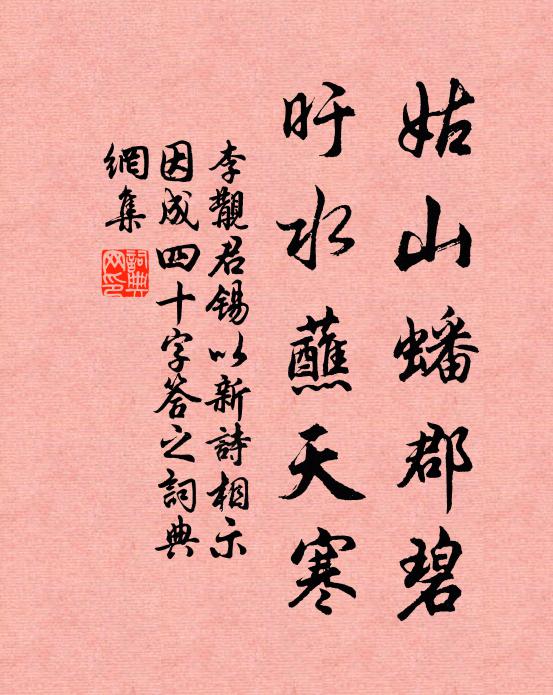 姑山蟠郡碧
盱水蘸天寒
李觀君錫以新詩相示
因成四十字答之詞典
網集
詞典网印